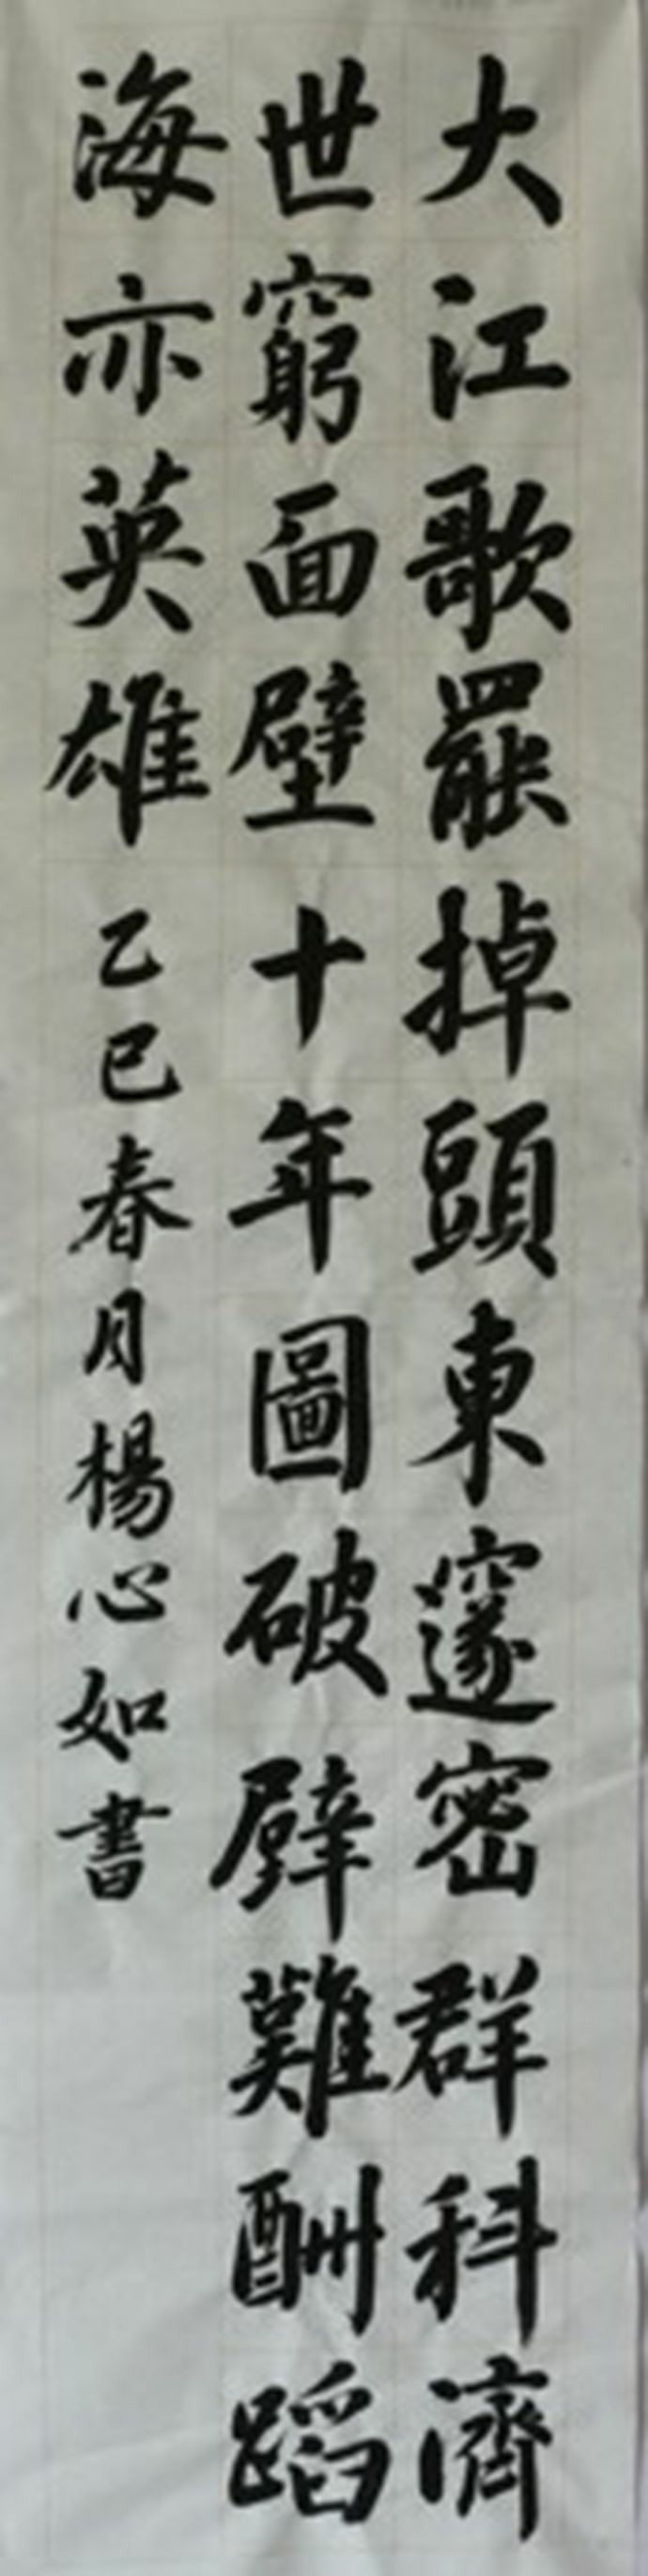 大江歌罷掉頭東邃密群科濟
世窮面壁十年圖破辟難酬蹈
海亦英雄乙巳春月楊心如書